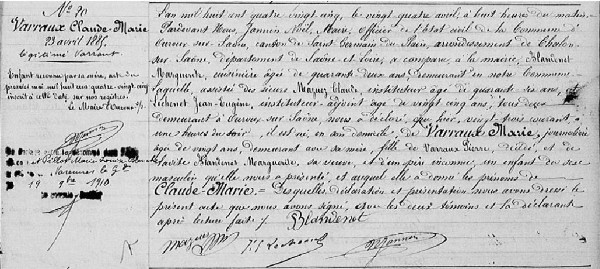 N° 20
Varraux Claude-Marie
23 avril 1885.
Enfant reconnu par sa mère, acte du
premier mai mil huit cent quatre vingt cinq
inscrit à cette date sur nos registres.
Le Maire d'Ouroux s/s.
19 9bre 1910
L'an mil huit cent quatre vingt cinq, le vingt quatre avril, à huit heures du matin
Pardevant Nous, Jannin Noël, Maire, Officier de l'état civil de la Commune d'
Ouroux sur Saône, canton de Saint Germain du Plain, arrondissement de Chalon
sur Saône, département de Saône et Loire, a comparu, à la mairie, Blandenet
Marguerite, cuisinière âgée de quarante deux ans, demeurant en notre Commune
laquelle, assistée des sieurs Claude, instituteur âgé de quarante six ans, et
Jean-Eugène, instituteur adjoint âgé de vingt cinq ans, tous deux
demeurant à Ouroux sur Saône, nous a déclaré, que hier, vingt trois courant, à
onze heures du soir, il est né, en son domicile, de Varraux Marie, journalière
âgée de vingt ans, demeurant avec sa mère, fille de Varraux Pierre, décédé, et de
la dite Blandenet Marguerite, sa veuve, et d'un père inconnu, un enfant du sexe
masculin qu'elle nous a présenté, et auquel elle a donné les prénoms de
Claude-Marie. = Lesquelles déclaration et présentation nous avons dressé le
présent acte que nous avons signé, avec les deux témoins et la déclarante
après lecture faite. /. Blandenet